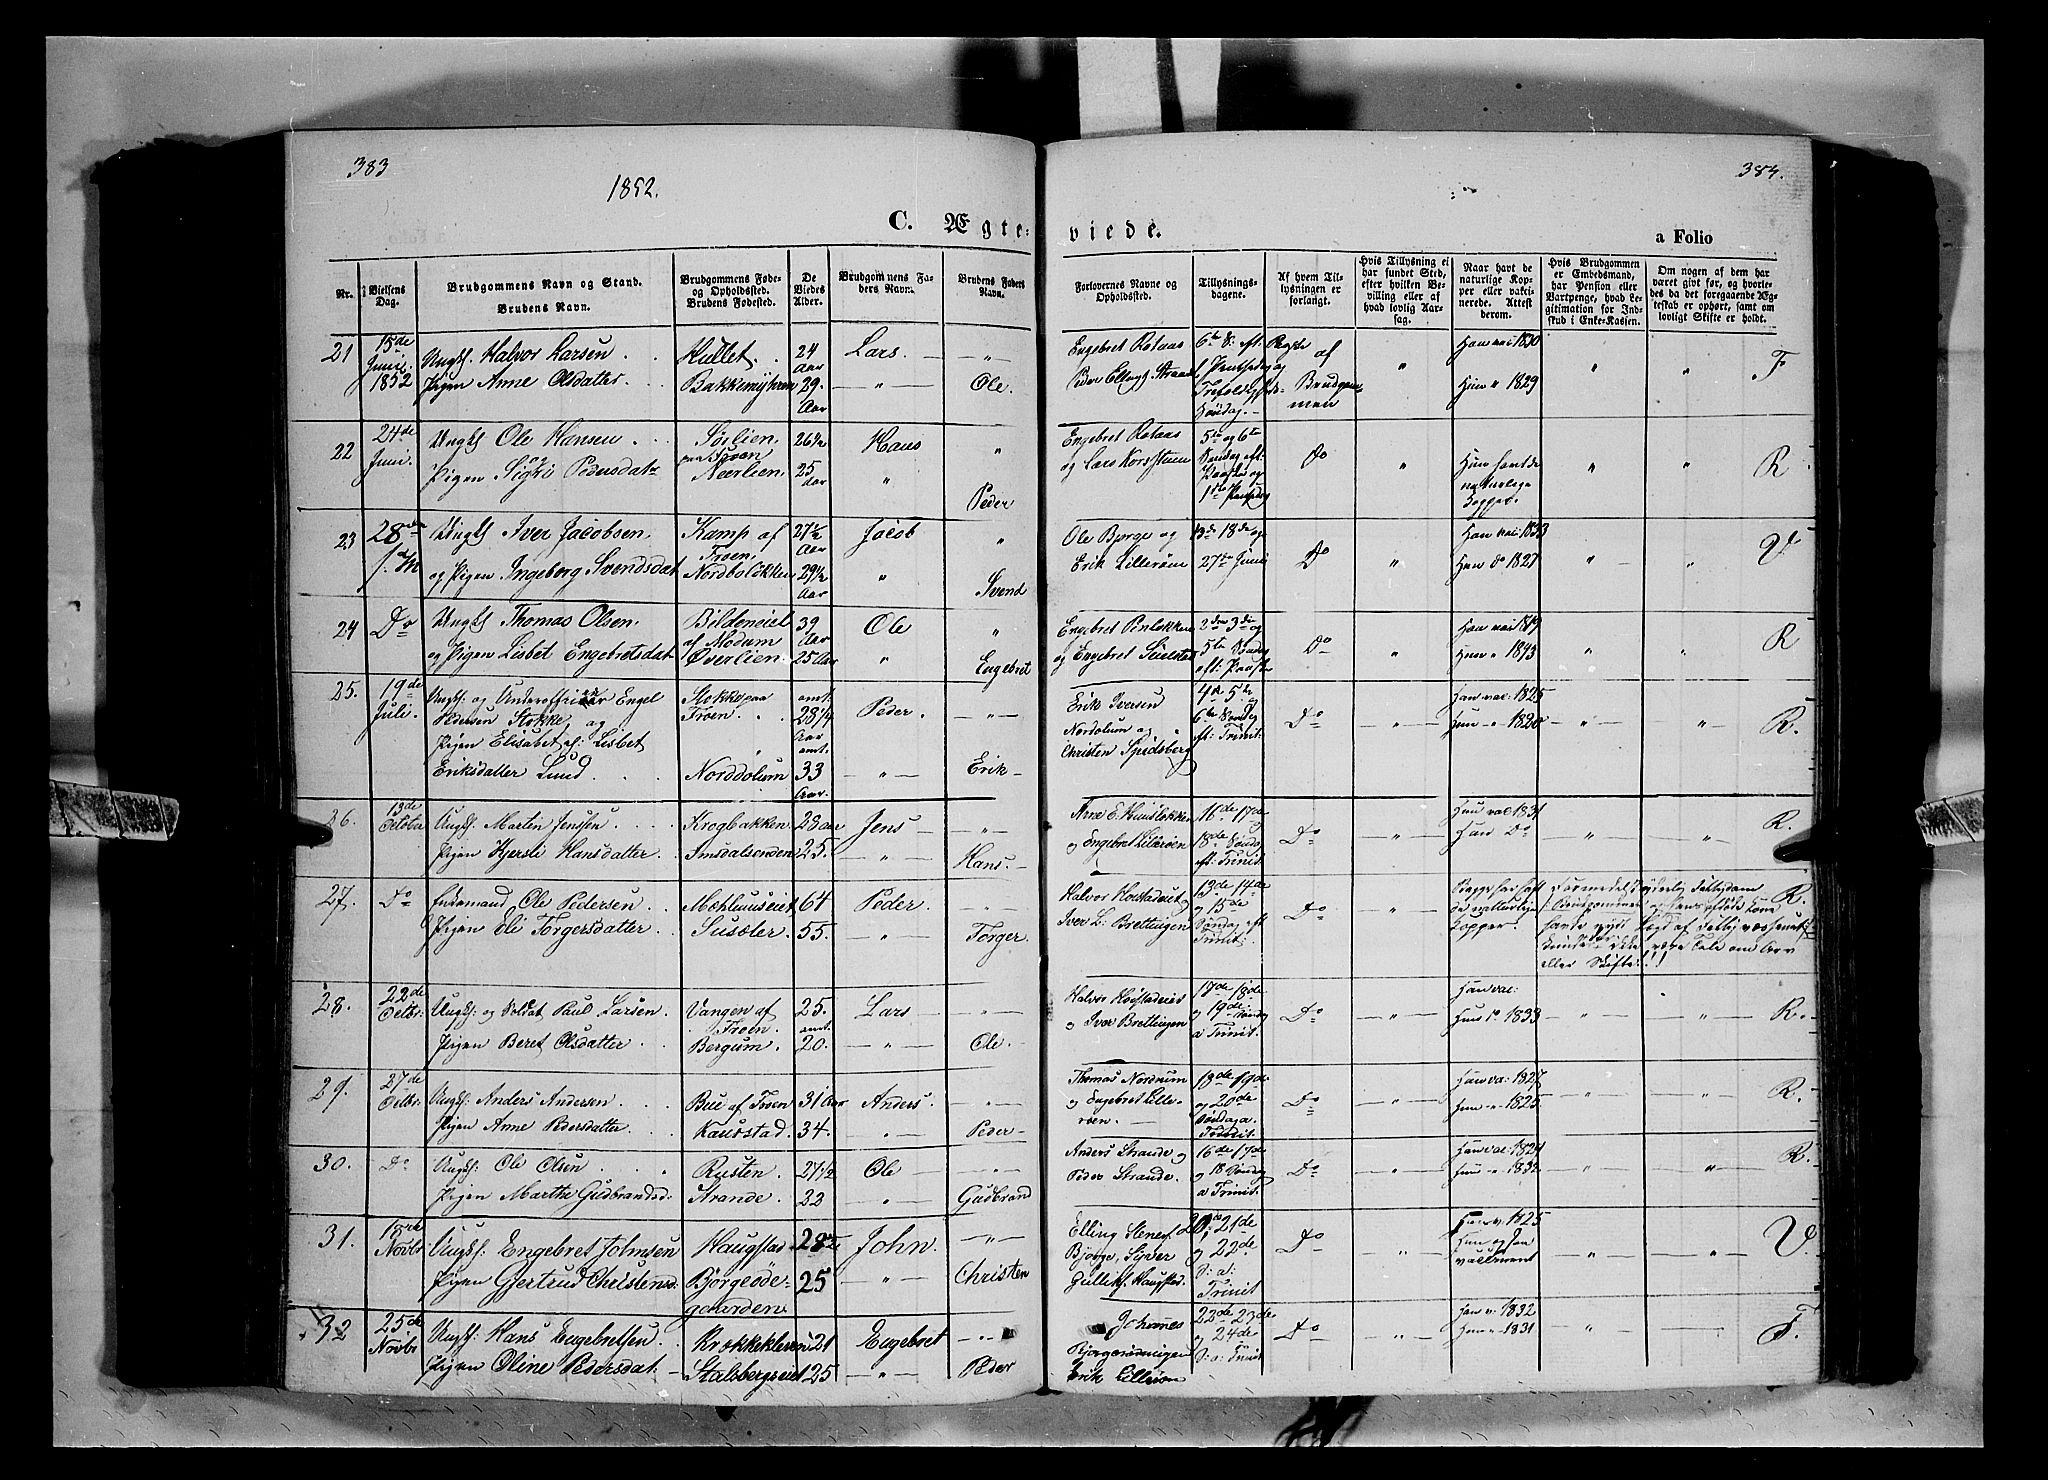 383
1852.
384.
C. Ægte-
viede.
a Folio
Nr.
Vielsens Dag.
Brudgommens Navn og Stand.
Brudens Navn.
Brudgommens Føde- og Opholdssted. Brudens Fødested.
De Viedes Alder.
Brudgommens Faders Navn.
Brudens Faders Navn.
Forlovernes Navne og Opholdssted.
Tillysningsdagene.
Af hvem Tillysningen er forlangt.
Hvis Tillysning ei har fundet Sted, efter hvilken Bevilling eller af hvad lovlig Aarsag.
Naar havt de naturlige Kopper eller vaksinerede. Attest derom.
Hvis Brudgommen er Embedsmand, har Pension eller Vartpenge, hvad Legitimation for Indskud i Enke-Kassen.
Om nogen af dem har været givt før, og hvorledes da det foregaaende Ægteskab er ophørt, samt om lovligt Skifte er holdt.
21 15de Juni 1852 Ungk Halvor Larsen . . Hullet . . 24 Aar Lars. — " Engebret Rotaas 6te S. eft. af " Han vac 1830 " " F
Pigen Anne Olsdatter . . Bakkemyhren 29 Aar — " — Ole. Peder Trefoldigheds Søndag. — Brudgommen Hun " 1829
22 24de Juni. Ungk Ole Hansen . . Sørlien 26½ Hans " Engebret Rotaas 5te og 6te Do " " " R
og Pigen Sigri Pedersdat Nærlien 25 Aar " Peder og Lars Korsstuen Søndag eft. Paaske og Hun havt de naturlige Kopper.
23 28de Ungk Iver Jacobsen Kamp af Troen 27½ Aar Jacob " Ole Børge og 13de 18de og Do " Han vac 1833 " " V
og Pigen Ingeborg Svendsdat Nordboløkken 29½ Aar " Svend Erik Lillerøen 27de Juni Hun Do 1827
24 Do Ungk Thomas Olsen Bildeneiet af Modum 39 Aar Ole " Engebret 2den 3die og Do " Han vac 1819 " " R
og Pigen Lisbet Engebretsdat Øverlien 25 Aar " Engebret og Engebret 5te Søndag eft: Paaske Hun " 1843
25. 19de Juli. Ungk: og Underofficier Engel Stokke paa amt. Peder. — " — Erik Iversen 4de 5te Do — " — Han vac: 1825 — " — " R.
Pedersen Stokke, og Troen . . 28¼ Aar Nordolum og 6te Sønd. Hun " 1820
Pigen Elisabet ell: Lisbet amt. Christen Spidsberg eft: Trinit:
Eriksdatter Lund . . . Norddolum 33 Aar. — " — Erik —
26. 13de Octobr Ungk: Marten Jenssen . . Krogbakken 28 aar Jens — — " — Arne E. Hunsløkken 16de 17de Do — " — Han vac 1831 " — " — R.
Pigen Kjersti Hansdatter . . Imsdalsenden 25. — " — Hans. — og Engebret Lillerøen 18de Søndag eft: Trinit. Hun Do
27. Do Enkemand Ole Pedersen Mæhlumseiet 64 Peder. — " — Halvor 13de 14de Do — " — R.
Pigen Eli Torgersdatter . . Susæter. 55. — " — Torger. Iver L. Brettingen og 15de Søndag eft Trinit: de naturlige Kopper. eller Skifte!!!
28. 22de Octbr: Ungk: og Soldat Paul Larsen . Vangen af Troen. 25. Lars — " — Halvor 17de 18de Do — " — Han vac: — " — " — R.
Pigen Beret Olsdatter . . Bergum. amt. 20. — " — Ole. — og Iver Brettingen og 19de Søndag a Trinit: Hun Do 1833
29. 27de Octbr: Ungk: Anders Andersen . . Bue af Troen 31 Aar Anders. — " — Thomas Nordrum 18de 19de Do — " — Han vac: 1827 — " — — " — R.
Pigen Anne Pedersdatter . . Kaurstad. 34. — " — Peder — og Engebret Lillerøen. — og 20de Søndag a. Trinit. Hun " 1825.
30. Do Ungk: Ole Olsen . . . Rusten 27½ Ole — — " — Anders Strande og 16de 17de Do — " — Han vac: 1824 — " — " — R.
Pigen Marthe Gudbrandsd: Strande. 22 — " — Gudbrand Peder Strande. og 18 Søndag a Trinit Hun " 1832
31. 18de Novbr Ungk: Engebret Johnsen Haugstad 28 John. — " — Elling 20, 21de Do — " — 1825 — " — " — V.
Pigen Gjertrud Christensd: Børgeøde- 25 — " — Christen Bjørge, Siver og 22de Hun og Han
gaarden Gulleks. Haugstad. S: a: Trinit vaccineret
32 25de Novbr Ungk: Hans Engebretsen Krækkekleven 21 Engebret — " Johannes 22de 23de Do — " — Han v: 1832 — " — — " — F.
Pigen Oline Pedersdat — Stalsbergseiet 25 — " — Peder og 24de Hun " 1831
Erik Lillerøen S: a: Trinit